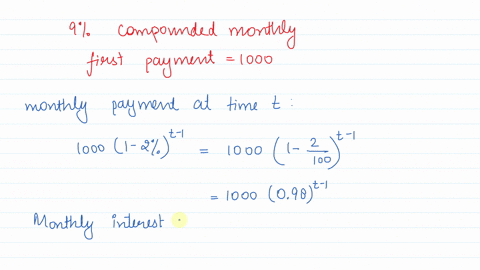 9% compounded monthly
first payment = 1000
monthly payment at time t :
1000 (1-2%)^{t-1} = 1000 (1 - 2/100)^{t-1}
= 1000 (0.98)^{t-1}
Monthly interest